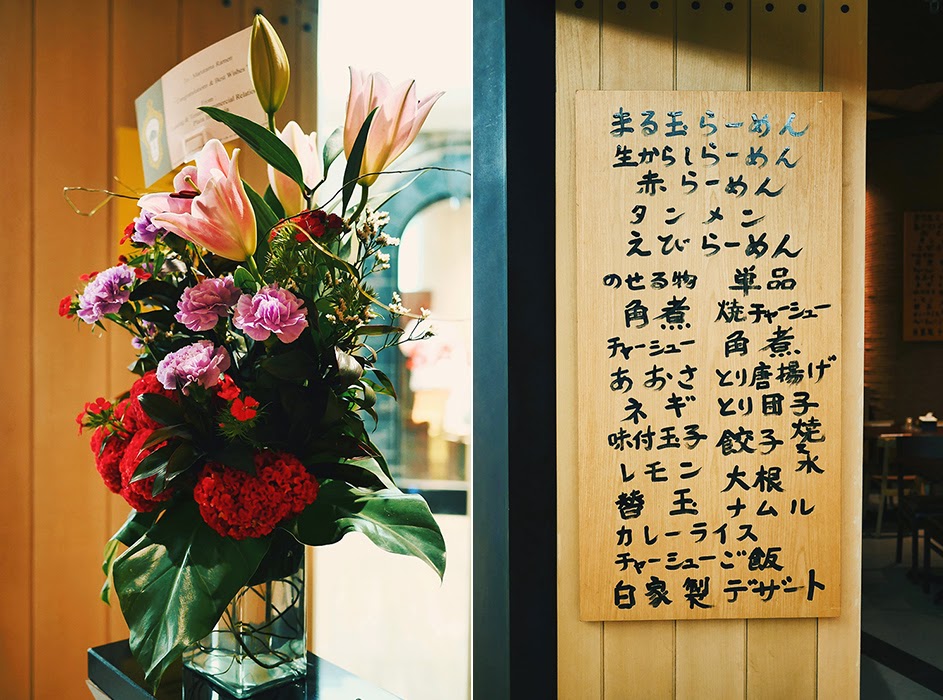 To: Marutama Ramen
Congratulations & Best Wishes
まる玉らーめん
生からしらーめん
赤らーめん
タンメン
えびらーめん
のせる物 単品
角煮 焼チャーシュー
チャーシュー 角煮
あおさ とり唐揚げ
ネギ とり団子
味付玉子 餃子 焼 水
レモン 大根
替玉 ナムル
カレーライス
チャーシューご飯
自家製デザート